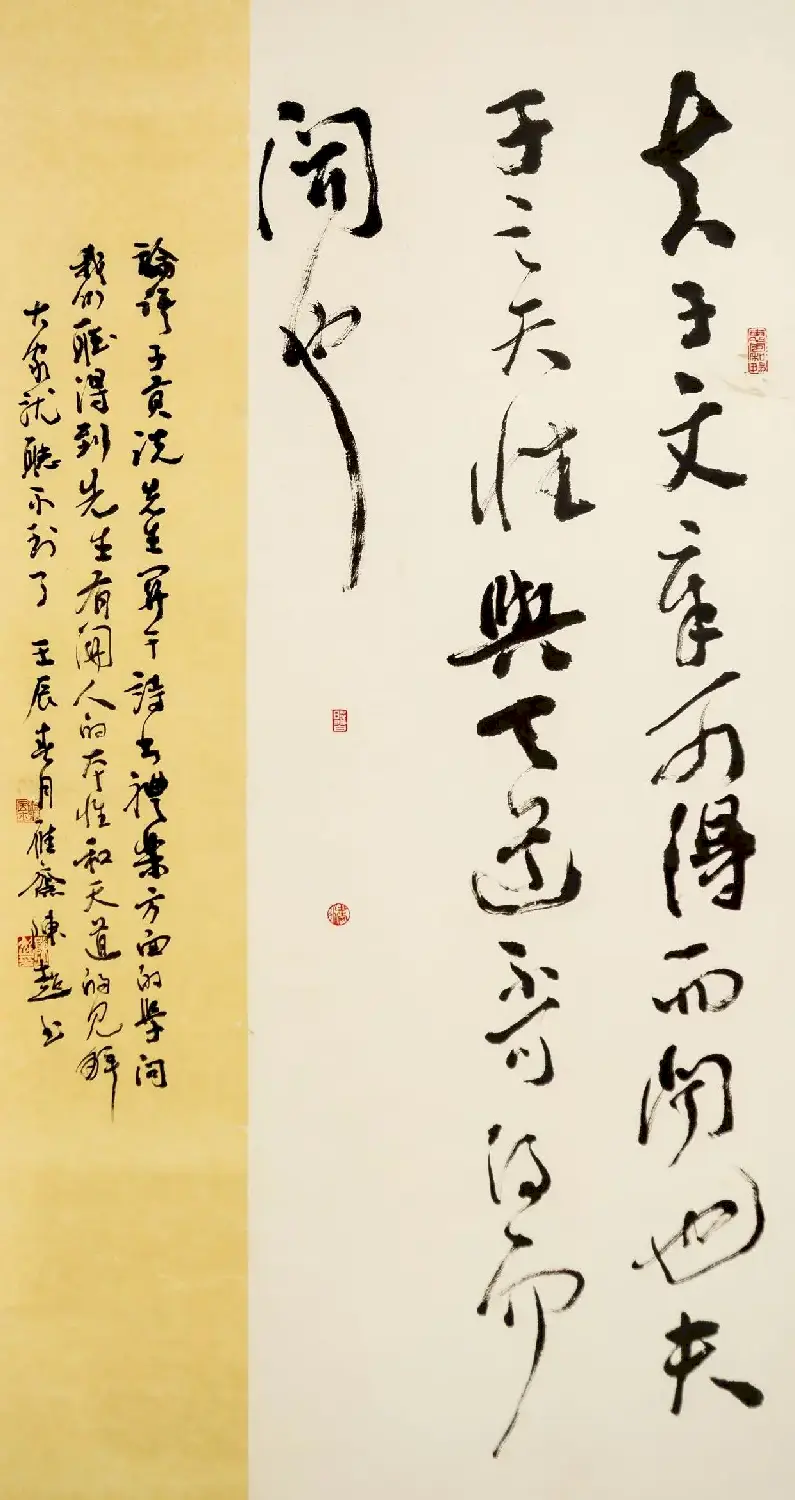 夫子文章可得而聞也夫
子之天性與天道不可得而
聞也
論語子貢説先生關于詩書禮樂方面的學問
我們聽得到先生有關人的本性和天道的見解
大家就聽不到了 壬辰春月齋陳超書